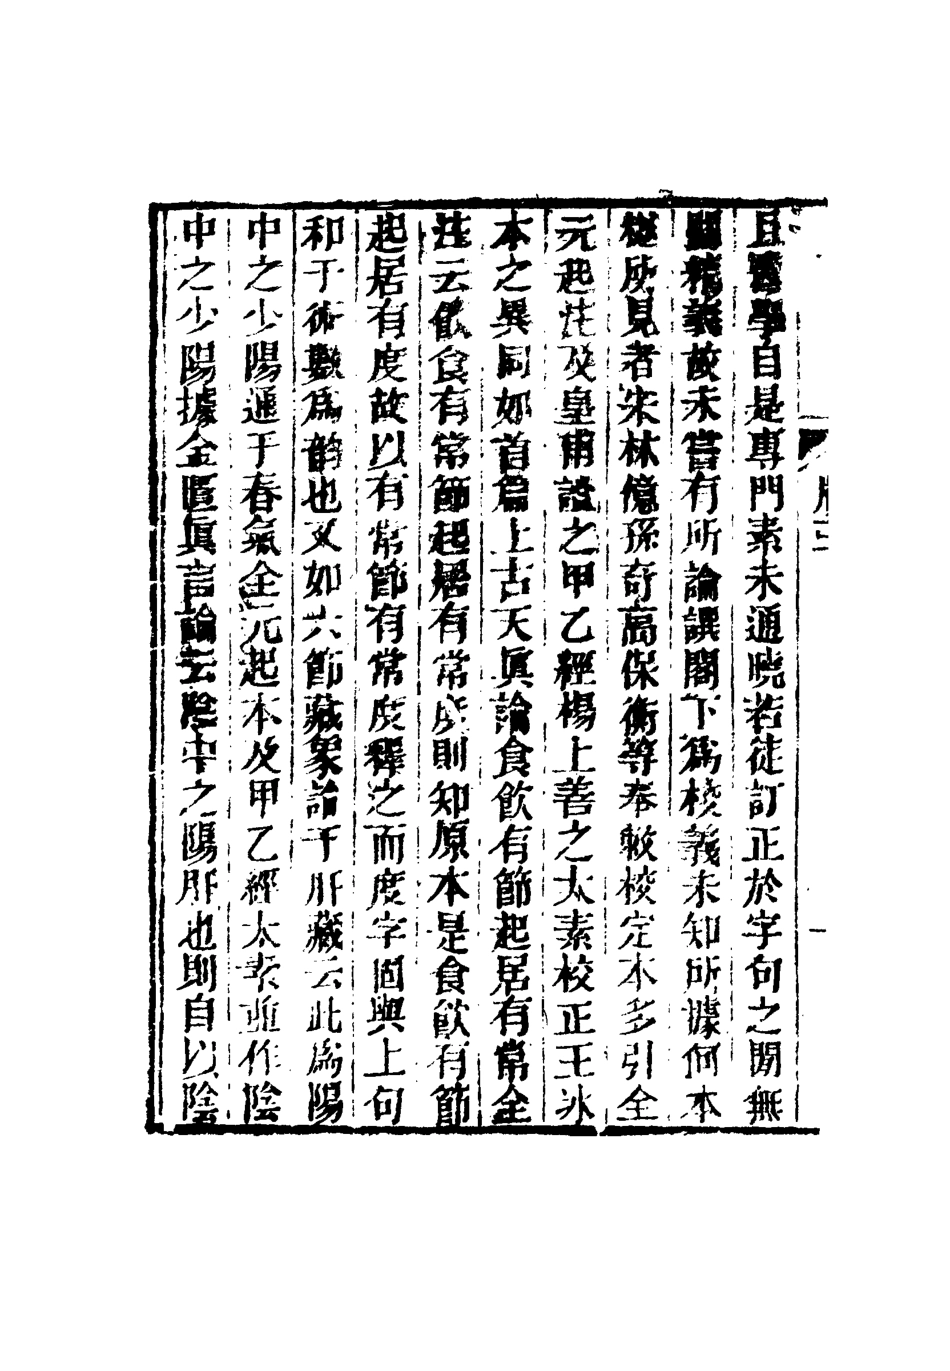 且醫學自是專門素未通曉若徒訂正於字句之閒無
關精義故未嘗有所論譔閣下爲校義未知所據何本
樾所見者宋林億孫奇高保衡等奉敕校定本多引全
元起注及皇甫謐之甲乙經楊上善之太素校正王冰
本之異同如首篇上古天眞論食飲有節起居有常全
注云飲食有常節起居有常度則知原本是食飲有節
起居有度故以有常節有常度釋之而度字固與上句
和于術數爲韵也又如六節藏象論于肝藏云此爲陽
中之少陽通于春氣全元起本及甲乙經太素並作陰
中之少陽據金匱眞言論云陰中之陽肝也則自以陰